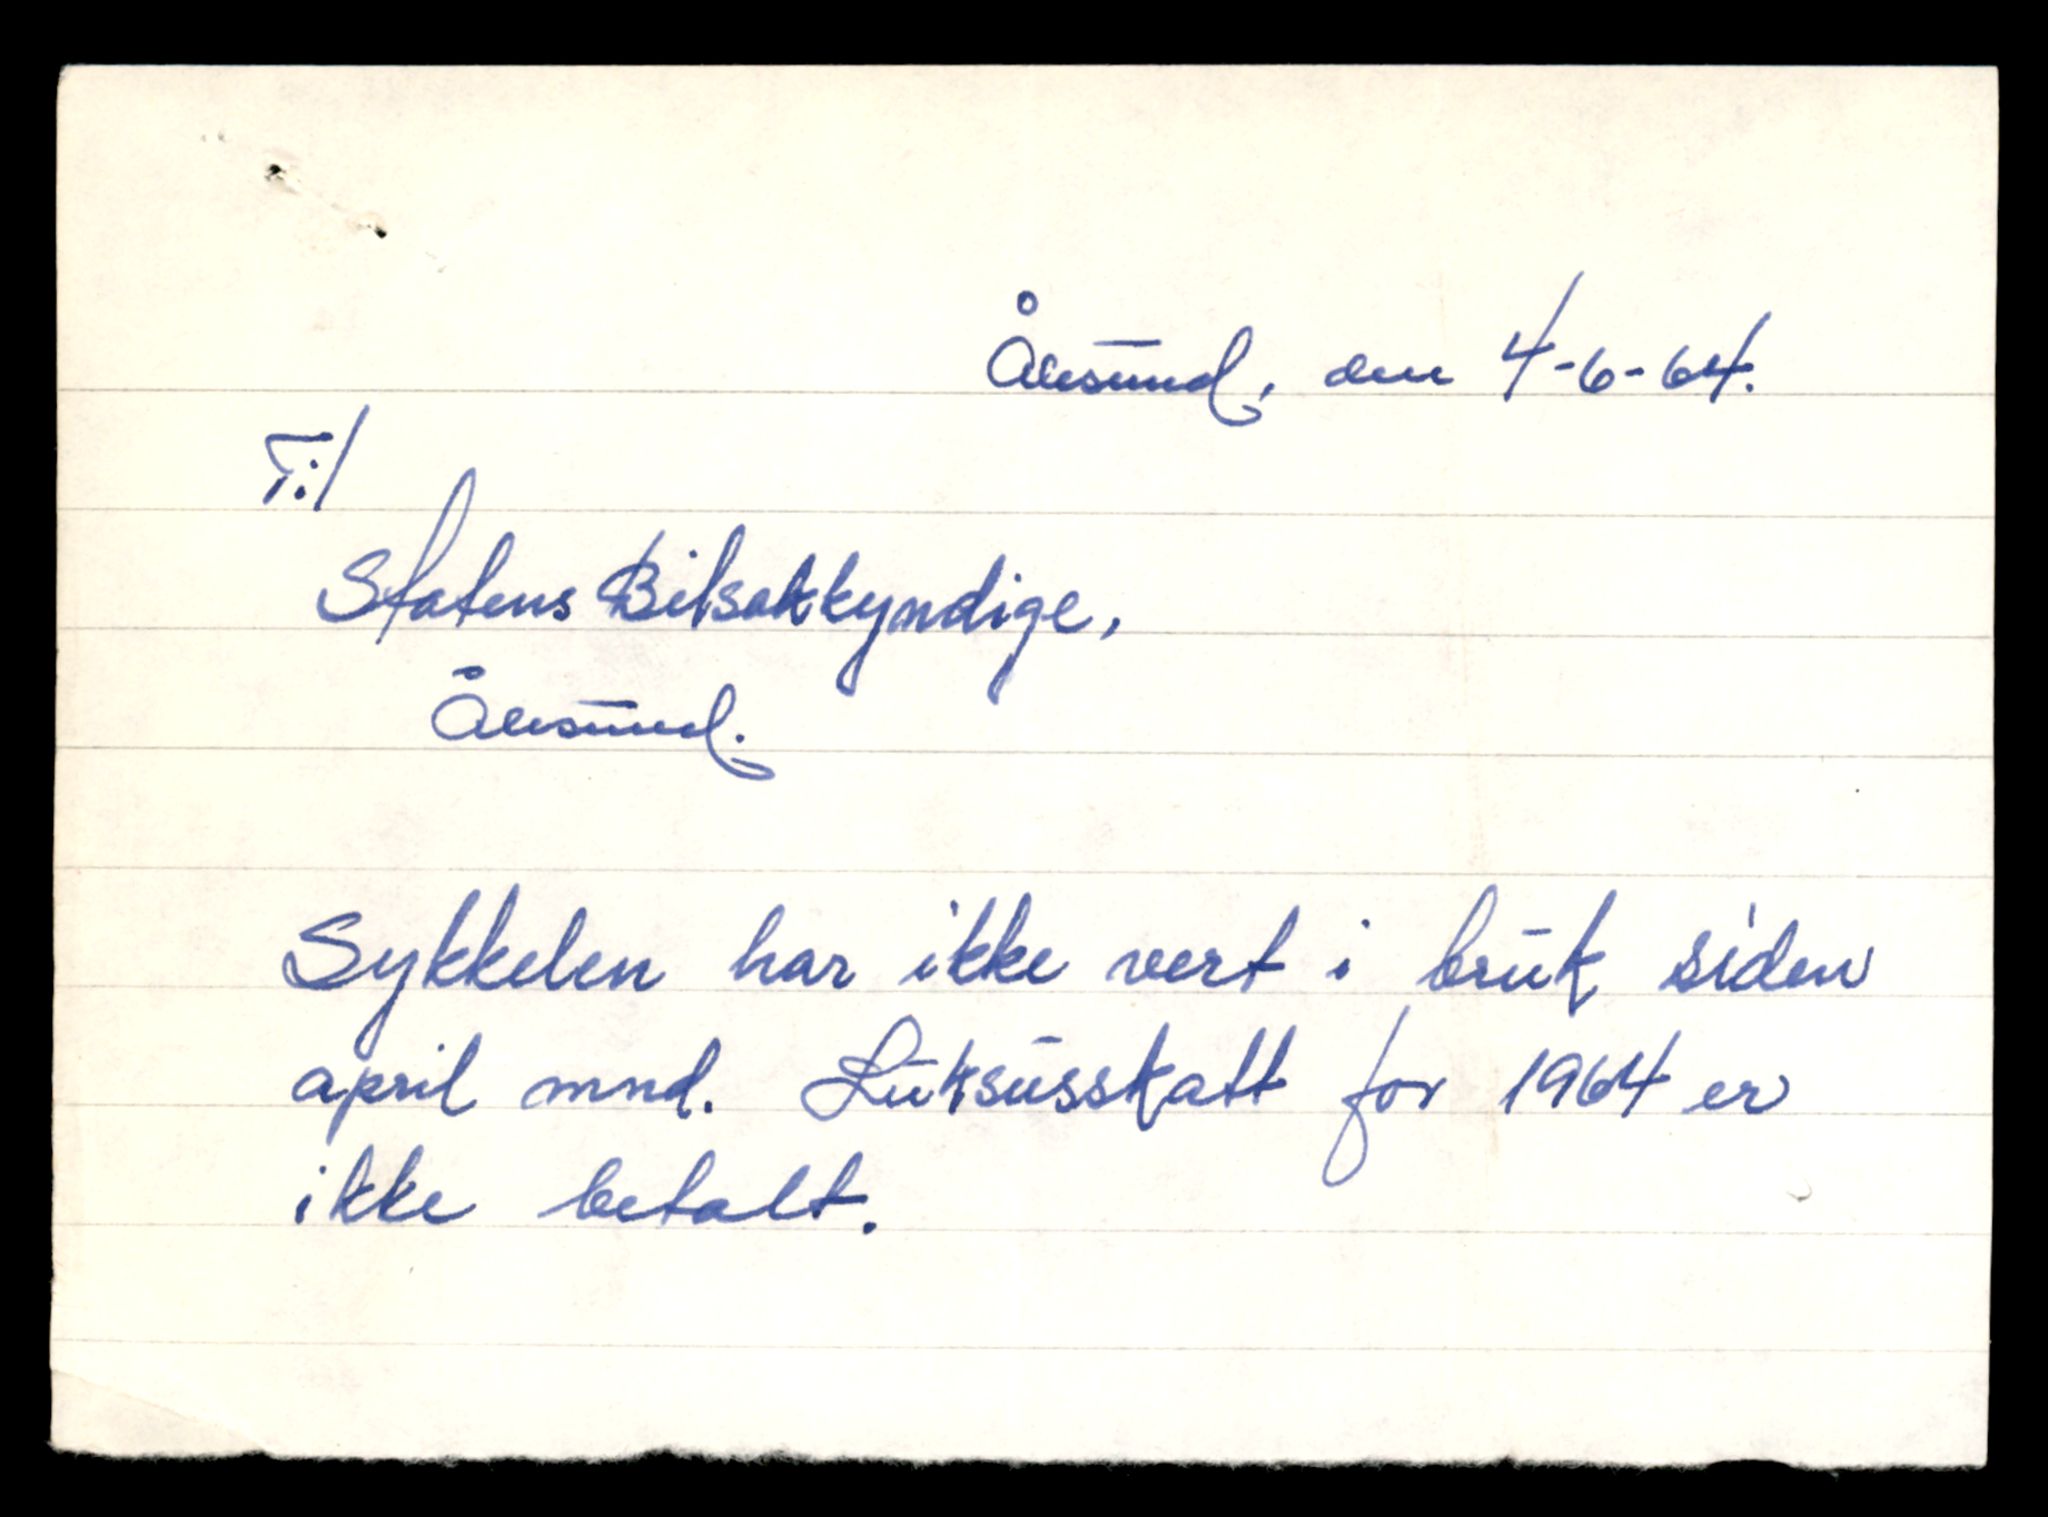 Ålesund, den 4-6-64.
Til
Statens Bilsakkyndige,
Ålesund.
Sykkelen har ikke vert i bruk siden
april mnd. Luksusskatt for 1964 er
ikke betalt.